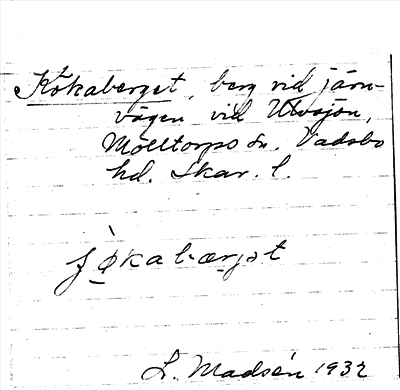 Kökaberget, berg vid järn-
vägen vid Utvsjön,
Mölltorps sn. Vadsbo
hd. Skar. l.
L. Madsén 1932